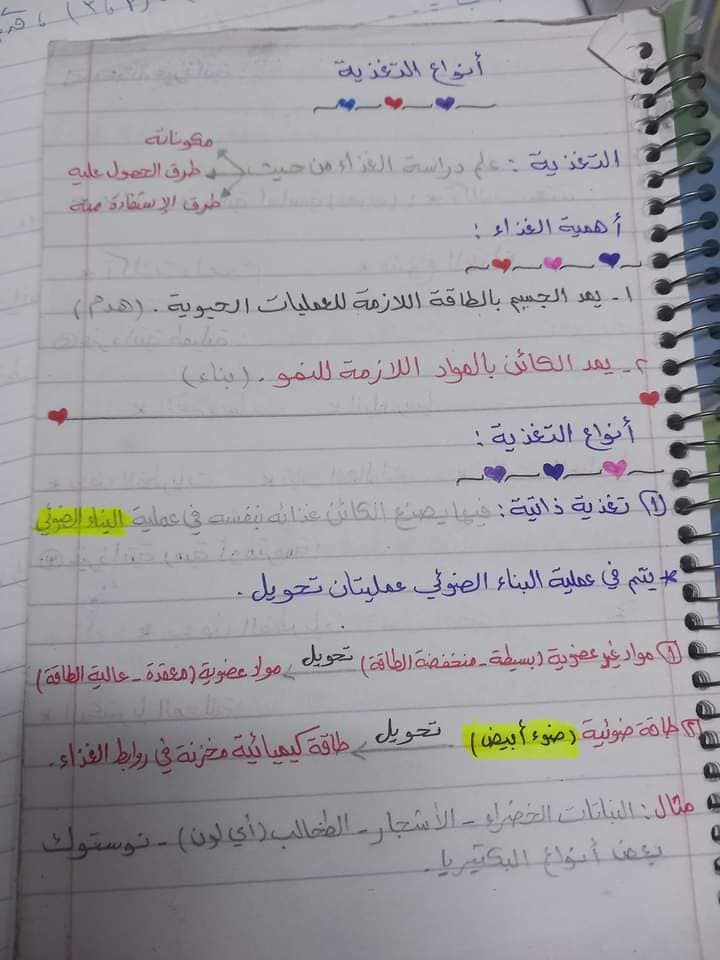 أنواع التغذية
التغذية : علم دراسة الغذاء من حيث
مكوناته
طرق الحصول عليه
طرق الإستفادة منه
أهمية الغذاء :
١- يمد الجسم بالطاقة اللازمة للعمليات الحيوية . (هدم)
٢- يمد الكائن بالمواد اللازمة للنمو . (بناء)
أنواع التغذية :
١) تغذية ذاتية : فيها يصنع الكائن غذائه بنفسه في عملية البناء الضوئي
* يتم في عملية البناء الضوئي عمليتان تحويل .
١) مواد غير عضوية (بسيطة - منخفضة الطاقة) تحويل مواد عضوية (معقدة - عالية الطاقة)
٢) طاقة ضوئية (ضوء أبيض) تحويل طاقة كيميائية مخزنة في روابط الغذاء .
مثال : النباتات الخضراء - الأشجار - الطحالب (أي لون) - نوستوك
بعض أنواع البكتيريا .